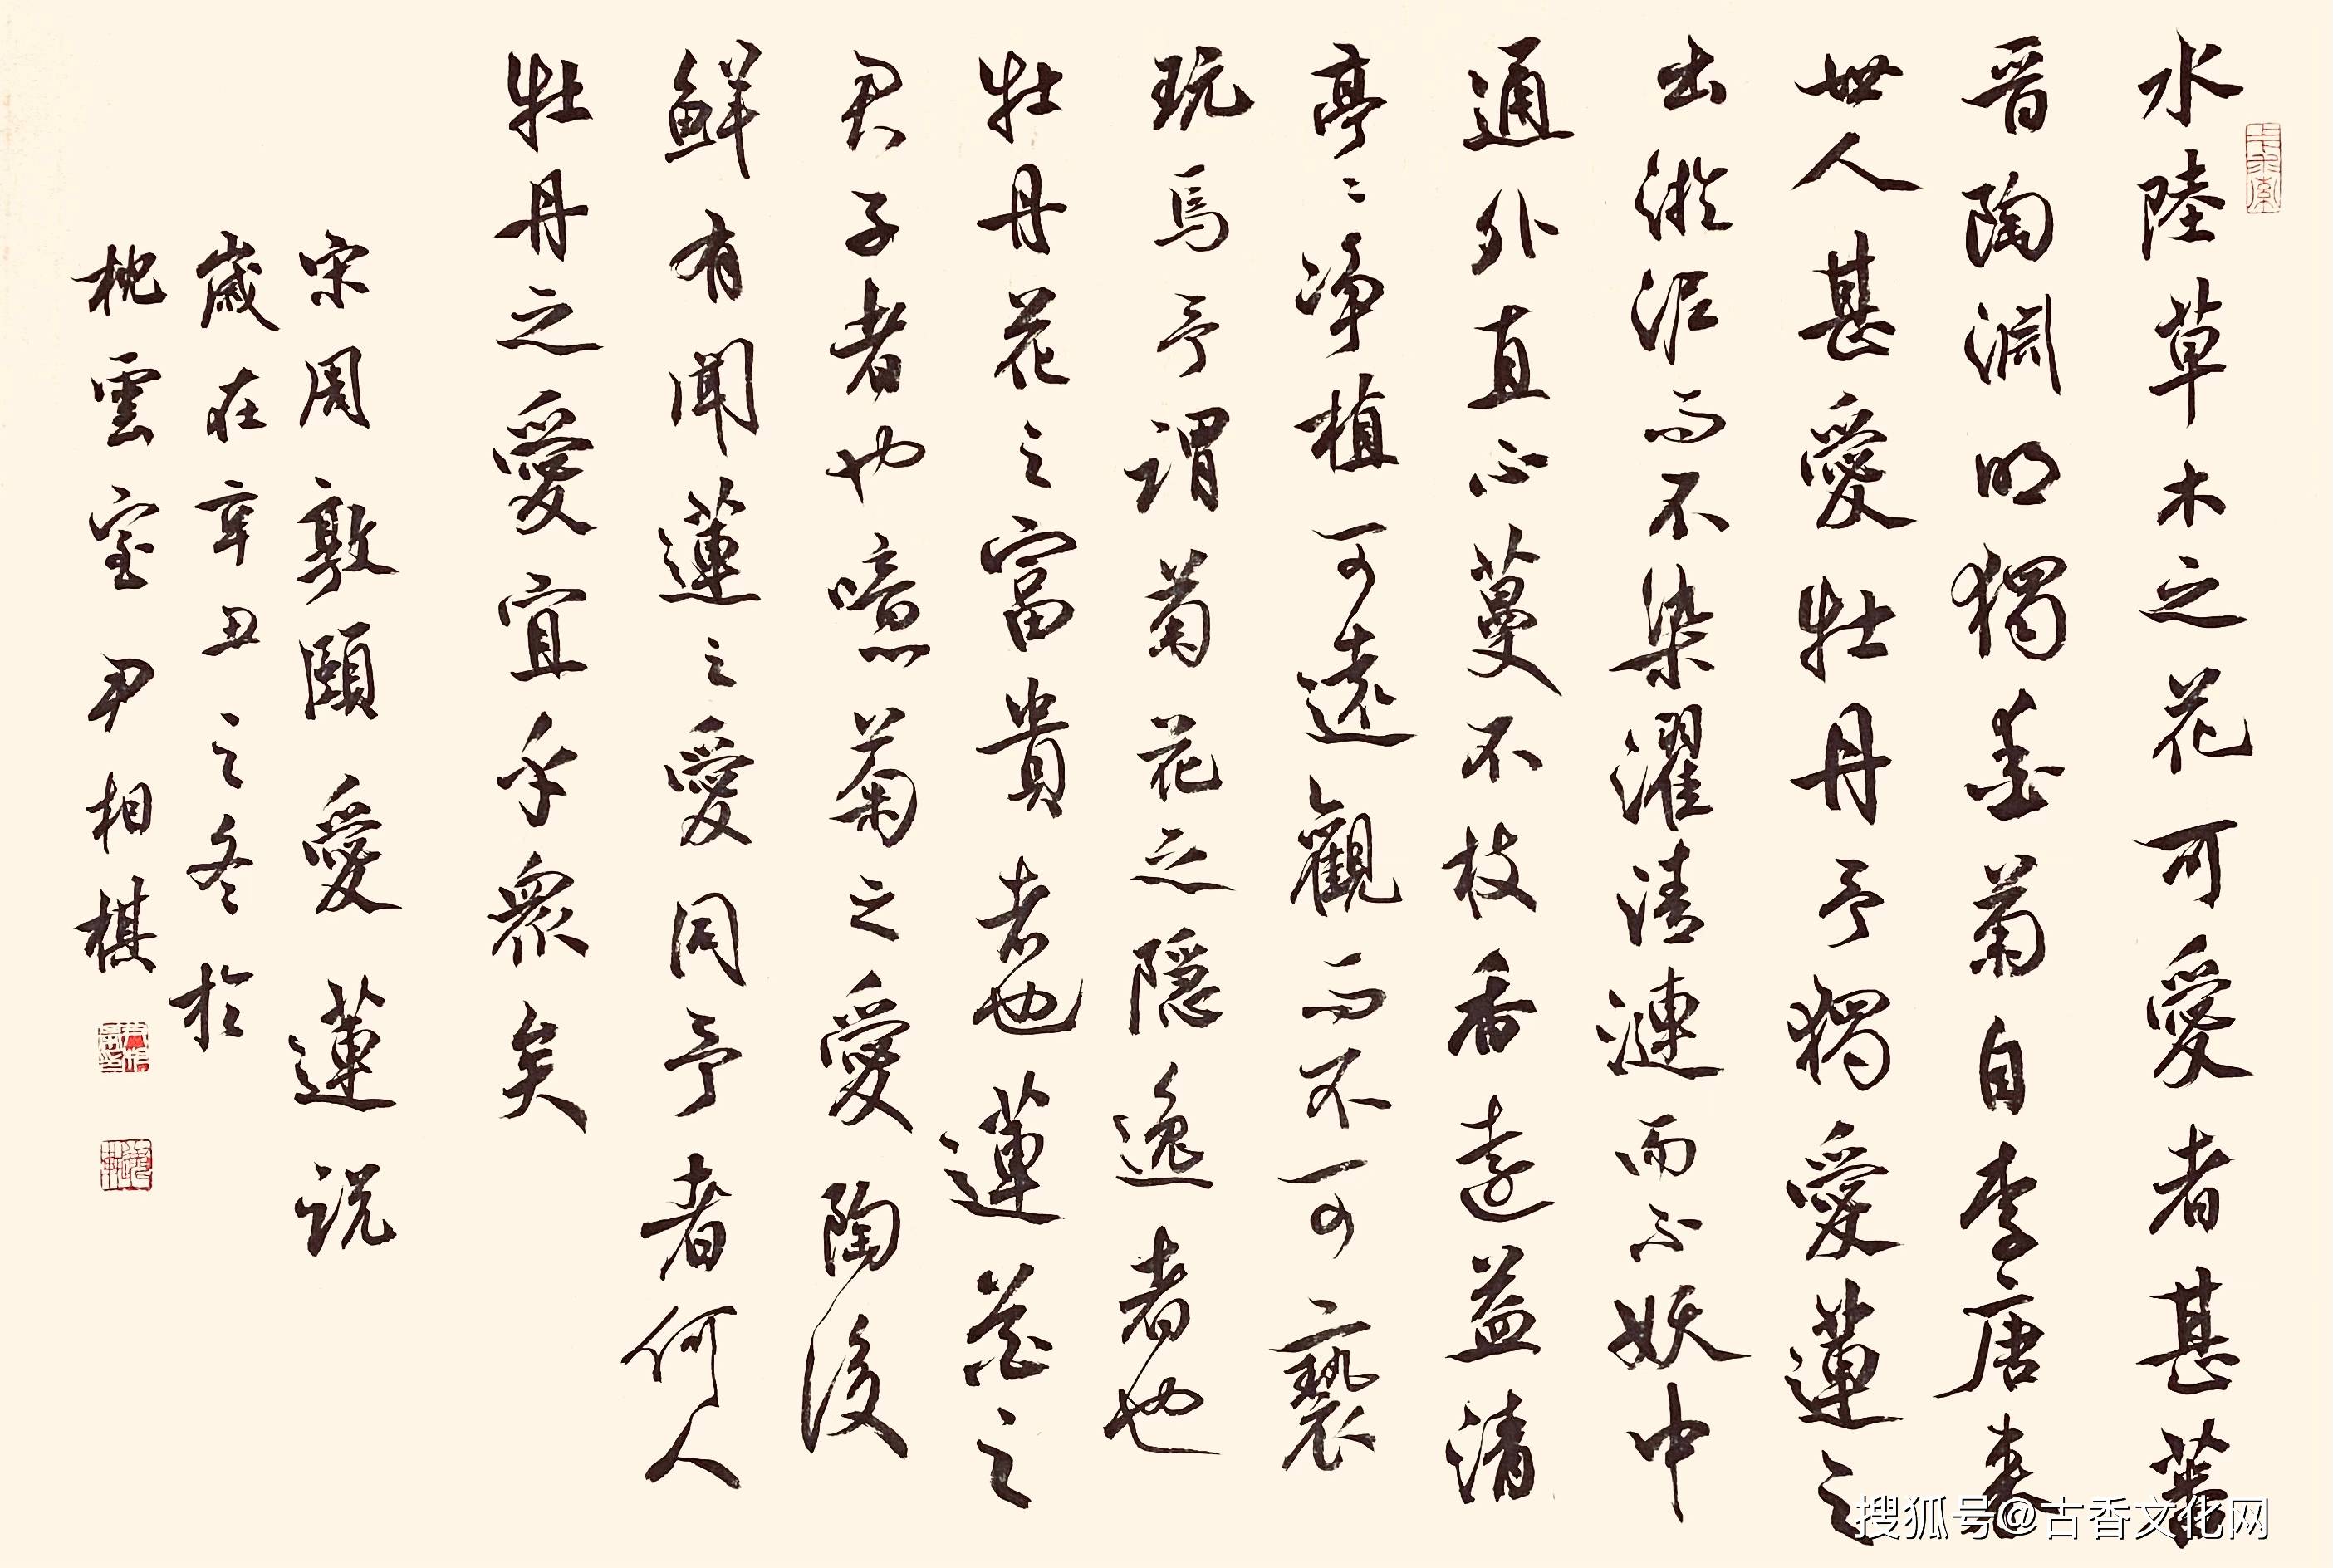 水陸草木之花可愛者甚蕃
晋陶淵明獨愛菊自李唐来
世人甚愛牡丹予獨愛蓮之
出淤泥而不染濯清漣而不妖中
通外直不蔓不枝香遠益清
亭〻净植可遠觀而不可褻
玩焉予謂菊花之隱逸者也
牡丹花之富貴者也蓮花之
君子者也噫菊之愛陶後
鮮有聞蓮之愛同予者何人
牡丹之愛宜乎衆矣
宋周敦頤愛蓮説
歲在辛丑之冬於
枕雲室尹相棋
搜狐号@古香文化网